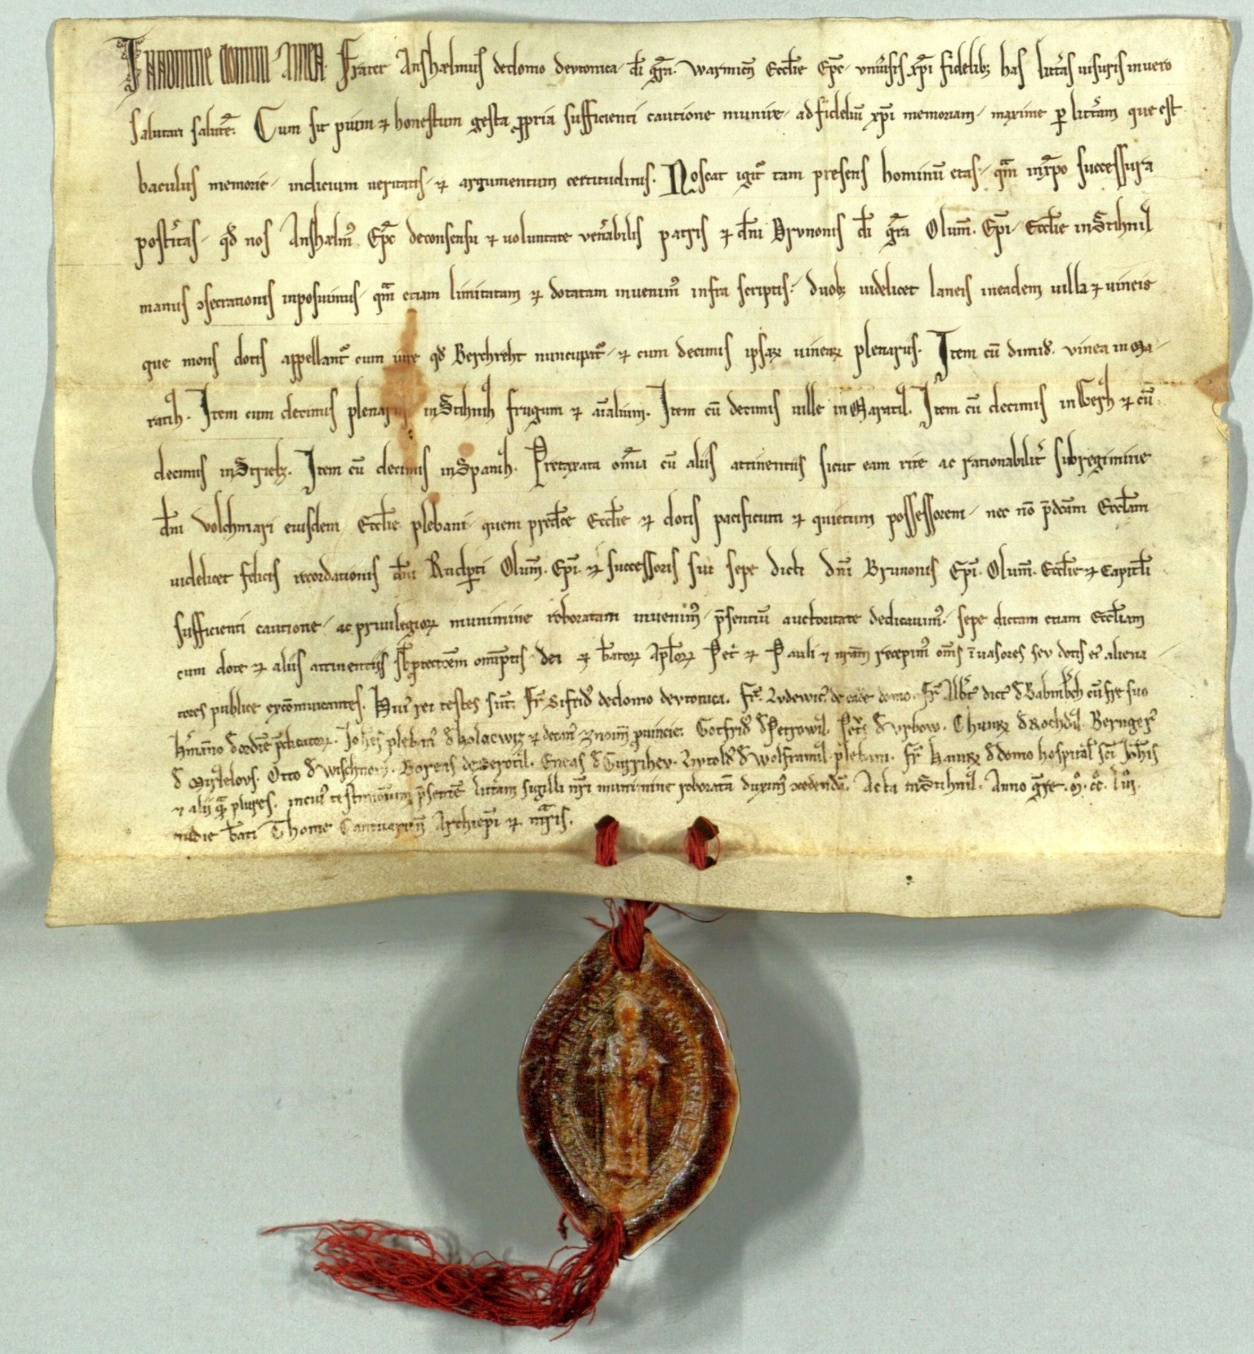 In nomine domini amen. Frater Anshelmus de domo deutonica. di gra. Warmien̄ Eccl̄ie Ep̄c. vniu̓sis xp̄i fidelib; has litt̓as uisuris in uero
salutari salutē. Cum sit pium ⁊ honestum gesta p̄pria sufficienti cautione munire. ad fideliū xp̄i memoriam. maxime ꝑ litt̓am que est
baculus memorie. indicium ueritatis. ⁊ argumentum certitudinis. Noscat igit̓ tam presens hominū etas. qm̄ in xp̄o successura
post̓itas. qd̄ nos Anshelm̓ Ep̄c de consensu ⁊ uoluntate ven̓abilis patris ⁊ dn̄i Brunonis di gr̄a Olum̄. Ep̄i. Eccl̄ie in Stihnil
manus ɔsecrationis inposuimus. qm̄ etiam limitatam ⁊ dotatam inuenim̓ infra scriptis. duob; uidelicet laneis in eadem uilla ⁊ vineis
que mons dotis appellant̓ cum iure qd̄ Berchreht nuncupat̓. ⁊ cum decimis ipsaꝝ uineaꝝ plenarijs. Item cū dimid̓. vinea in Ma
ratih. Item cum decimis plenarijs in Stihnih frugum ⁊ au̓alium. Item cū decimis uille in Maratil. Item cū decimis in ⁊ cū
decimis in Strielz. Item cū decimis in Spanih. Pretaxata om̄ia cū aliis attinentiis sicut eam rite ac rationabilit̓ sub regimine
dn̄i Volchmari eiusdem Eccl̄ie plebani. quem predc̄e Eccl̄ie ⁊ dotis pacificum ⁊ quietum possessorem. nec nō p̄dc̄am Eccl̄am
uidelicet felicis recordationis dn̄i Rudp̄ti Olum̄. Ep̄i. ⁊ successoris sui sepe dicti dn̄i Brunonis Ep̄i. Olum̄. Eccl̄ie ⁊ Capit̄li
sufficienti cautione. ac priuilegioꝝ munimine roboratam inuenim̓. p̄sentiū auctoritate dedicauim̓. sepe dictam etiam Eccl̄iam
cum dote ⁊ aliis attinentiis sb̄ ptectōem omp̄tis dei ⁊ b̄atoꝝ Apl̄oꝝ Pet̓ ⁊ Pauli ⁊ nr̄am recepim̓ om̄s ī uasores seu dotis ei̓ aliena
tores publice excōmunicantes. Hui̓ rei testes sūt. Fr̄. Sifrid̓ de domo deutonica. Fr̄. Ludewic̓ de eadem domo. Fr̄. Alb̓t̓ dict̓ d̓ Babinb̓ch cū fr̄e suo
h̓man̄o d̓ ordīe p̄dicatoꝝ. Joh̄es pleban̓ d̓ Kolacwiz ⁊ decan̓ Znoim̄ prouincie. Gotfrid̓ d̓ Petrowil. Pet̓s d̓ Vrbow. Chunꝝ d̓ Rochdil. Bernger̓
d̓ Mizlelovs. Otto d̓ Wischnow. Boreas de Serotil. Eneas d̓ Lutold̓ d̓ Wolframil. plebani. Fr̄. Hainꝝ d̓ domo hospital̓ sc̄i Joh̄is
⁊ alij q̓m plures. In cui̓ testimonium p̄sentē litt̓am sigilli nr̄i munimine roboratā duxim̓ ɔcedendā. Acta in Stihnil. Anno gr̄e. M̊. CC̊. Liii̊.
in die b̄ati Thome Cantuarien̄ Archiep̄i ⁊ m̄ris.